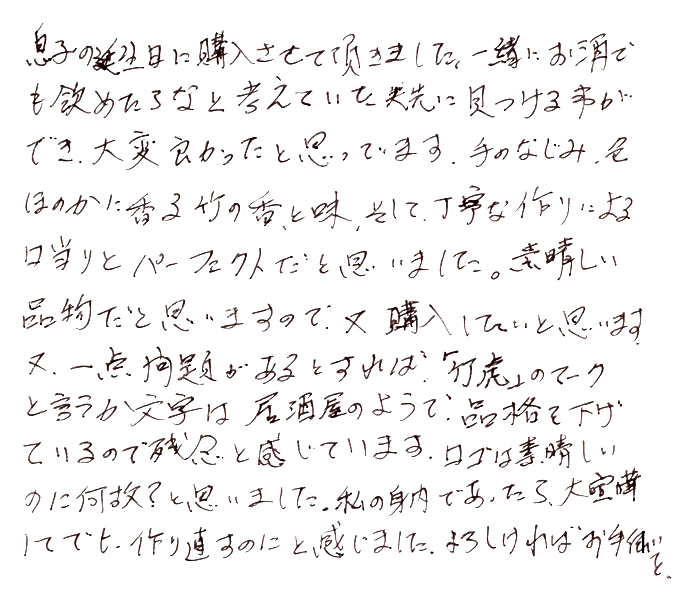 息子の誕生日に購入させて頂きました、一緒にお酒で
も飲めたらなと考えていた矢先に見つける事が
でき、大変良かったと思っています。手のなじみ、色
ほのかに香る竹の香、と味、そして、丁寧な作りによる
口当りとパーフェクトだと思いました。素晴しい
品物だと思いますので、又購入したいと思います
又、一点問題があるとすれば、「竹虎」のマーク
と言うか文字は居酒屋のようで、品格を下げ
ているので残念と感じています。ロゴは素晴しい
のに何故？と思いました。私の身内であったら、大喧嘩
してでも、作り直すのにと感じました。よろしければお手伝い
を、